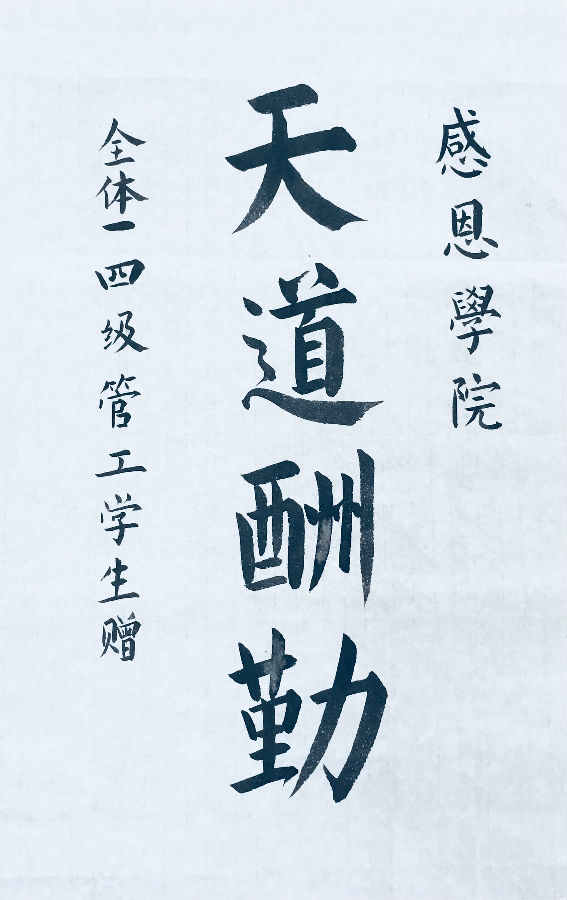 感恩學院
天道酬勤
全体一四级管工学生赠